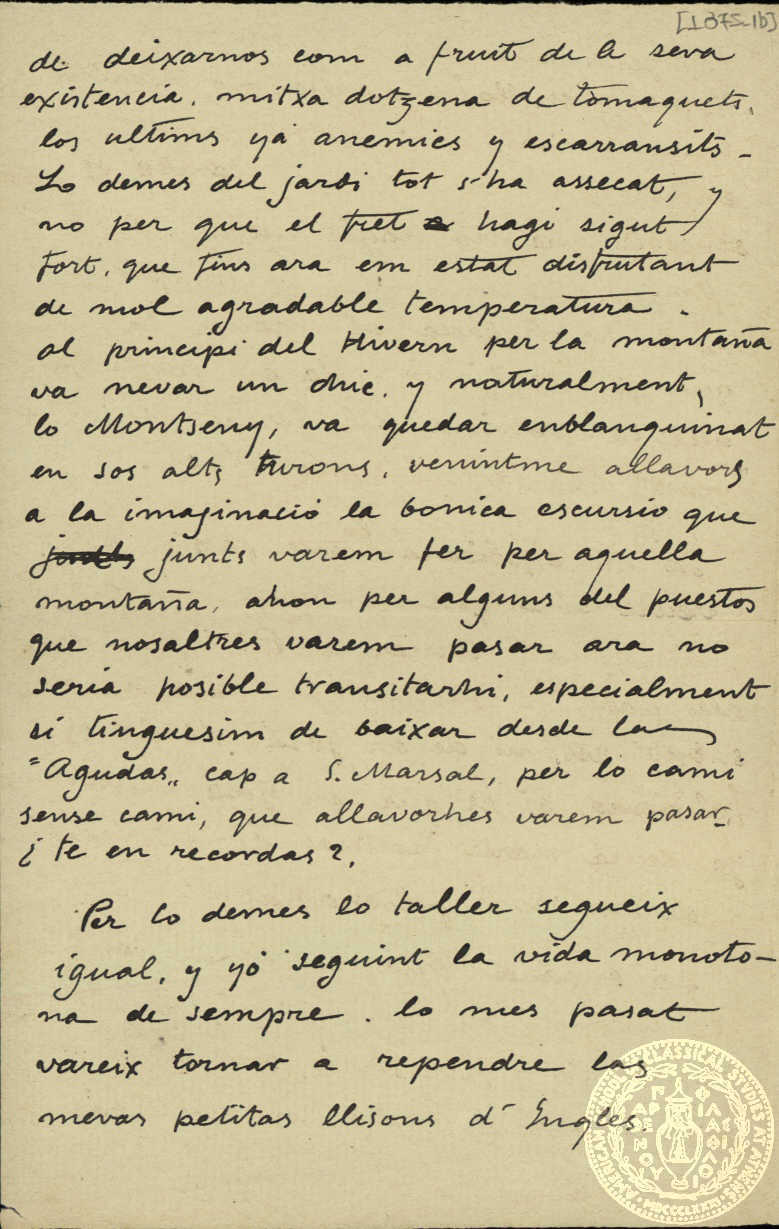 [1075-1b]
de deixarnos com a fruit de la seva
existencia. mitxa dotzena de tomaquets,
los ultims ya anemics y escarransits -
Lo demes del jardi tot s'ha assecat, y
no per que el fret hagi sigut
fort, que fins ara em estat disfrutant
de mol agradable temperatura.
al principi del Hivern per la montaña
va nevar un chic. y naturalment,
lo Montseny, va quedar enblanquinat
en sos alts turons, venintme allavors
a la imaginació la bonica escursio que
junts varem fer per aquella
montaña, ahon per alguns del puestos
que nosaltres varem pasar ara no
seria posible transitarhi, especialment
si tinguesim de baixar desde las
"Agudas„ cap a S. Marsal, per lo cami
sense cami, que allavorhes varem pasar_
¿ te en recordas?.
Per lo demes lo taller segueix
igual, y yó seguint la vida monoto-
na de sempre. lo mes pasat
vareix tornar a rependre las
mevas petitas llisons d' Engles.
AMERICAN SCHOOL OF CLASSICAL STUDIES AT ATHENS
ΠΑΡΘΕΝΟΥ ΦΙΛΑΣ ΦΙΛΟΙ
MDCCCLXXXI